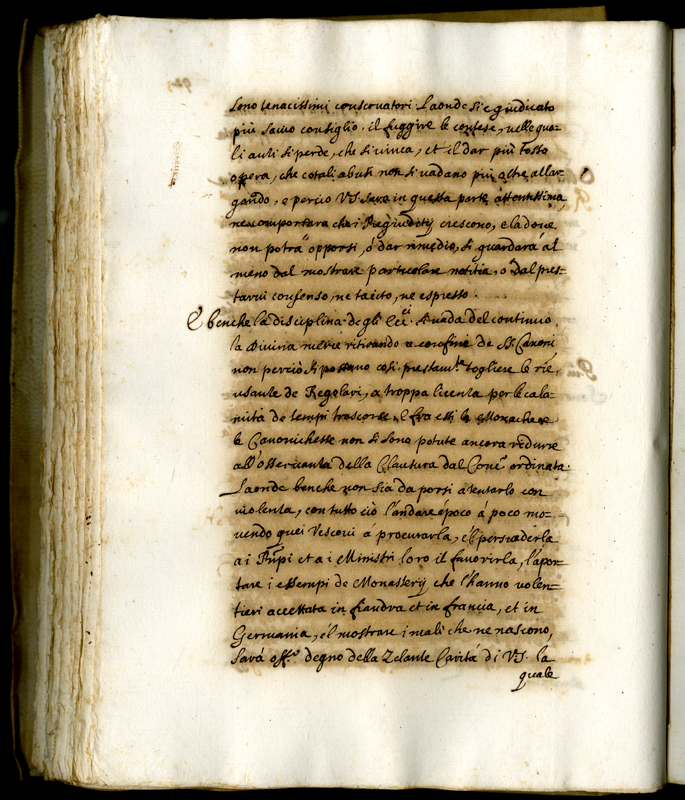 sono tenacissimi conservatori. Laonde si è giudicato
più savio consiglio, il fuggire le contese, nelle qua=
li anti si perde, che si vinca, et il dar più tosto
opera, che cotali abusi non si vadano più oltre allar=
gando, e perciò V.S. sarà in questa parte attentissima,
ne comportara che i Pregiuditij crescono, e là dove
non potrà opporsi, ò dar rimedio, si guardarà al
meno dal mostrare particolare notitia, ò dal pres=
tarvi consenso, ne tacito, ne espresso.
E benche la disciplina degli Ecc.ci si vada del continuo
la divina mercè ritirando a confine de SS. Canoni
non perciò si possano così prestam.te togliere le rie,
usanze de Regolari, a troppa licenza per le cala=
mità de tempi trascorse, e fra essi le Monache, e
le Canonichesse non si sono potute ancora ridurre
all'osservanza della Clausura dal Conc.o ordinata.
Laonde benche non sia da porsi a tentarlo con
violenza, con tutto ciò l'andare à poco à poco mo=
vendo quei Vescovi à procurarla, è'l persuaderla
a i Prñpi et a i Ministri loro il favorirla, l'apor=
tare i essempi de Monasterij che l'hanno volen=
tieri accettata in fiandra et in francia, et in
Germania, è'l mostrare i mali che ne nascono,
sarà off.o degno della Zelante Carità di V.S. la
quale